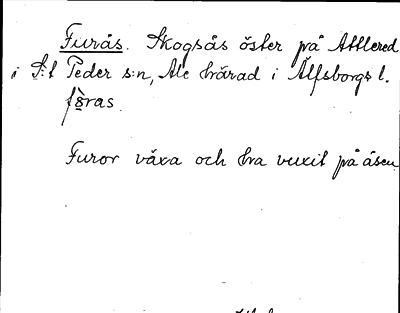 Furås. Skogsås öster på Attlered
i S:t Peder s:n, Ale härad i Älfsborgs l.
Furor växa och ha vuxit på åsen.